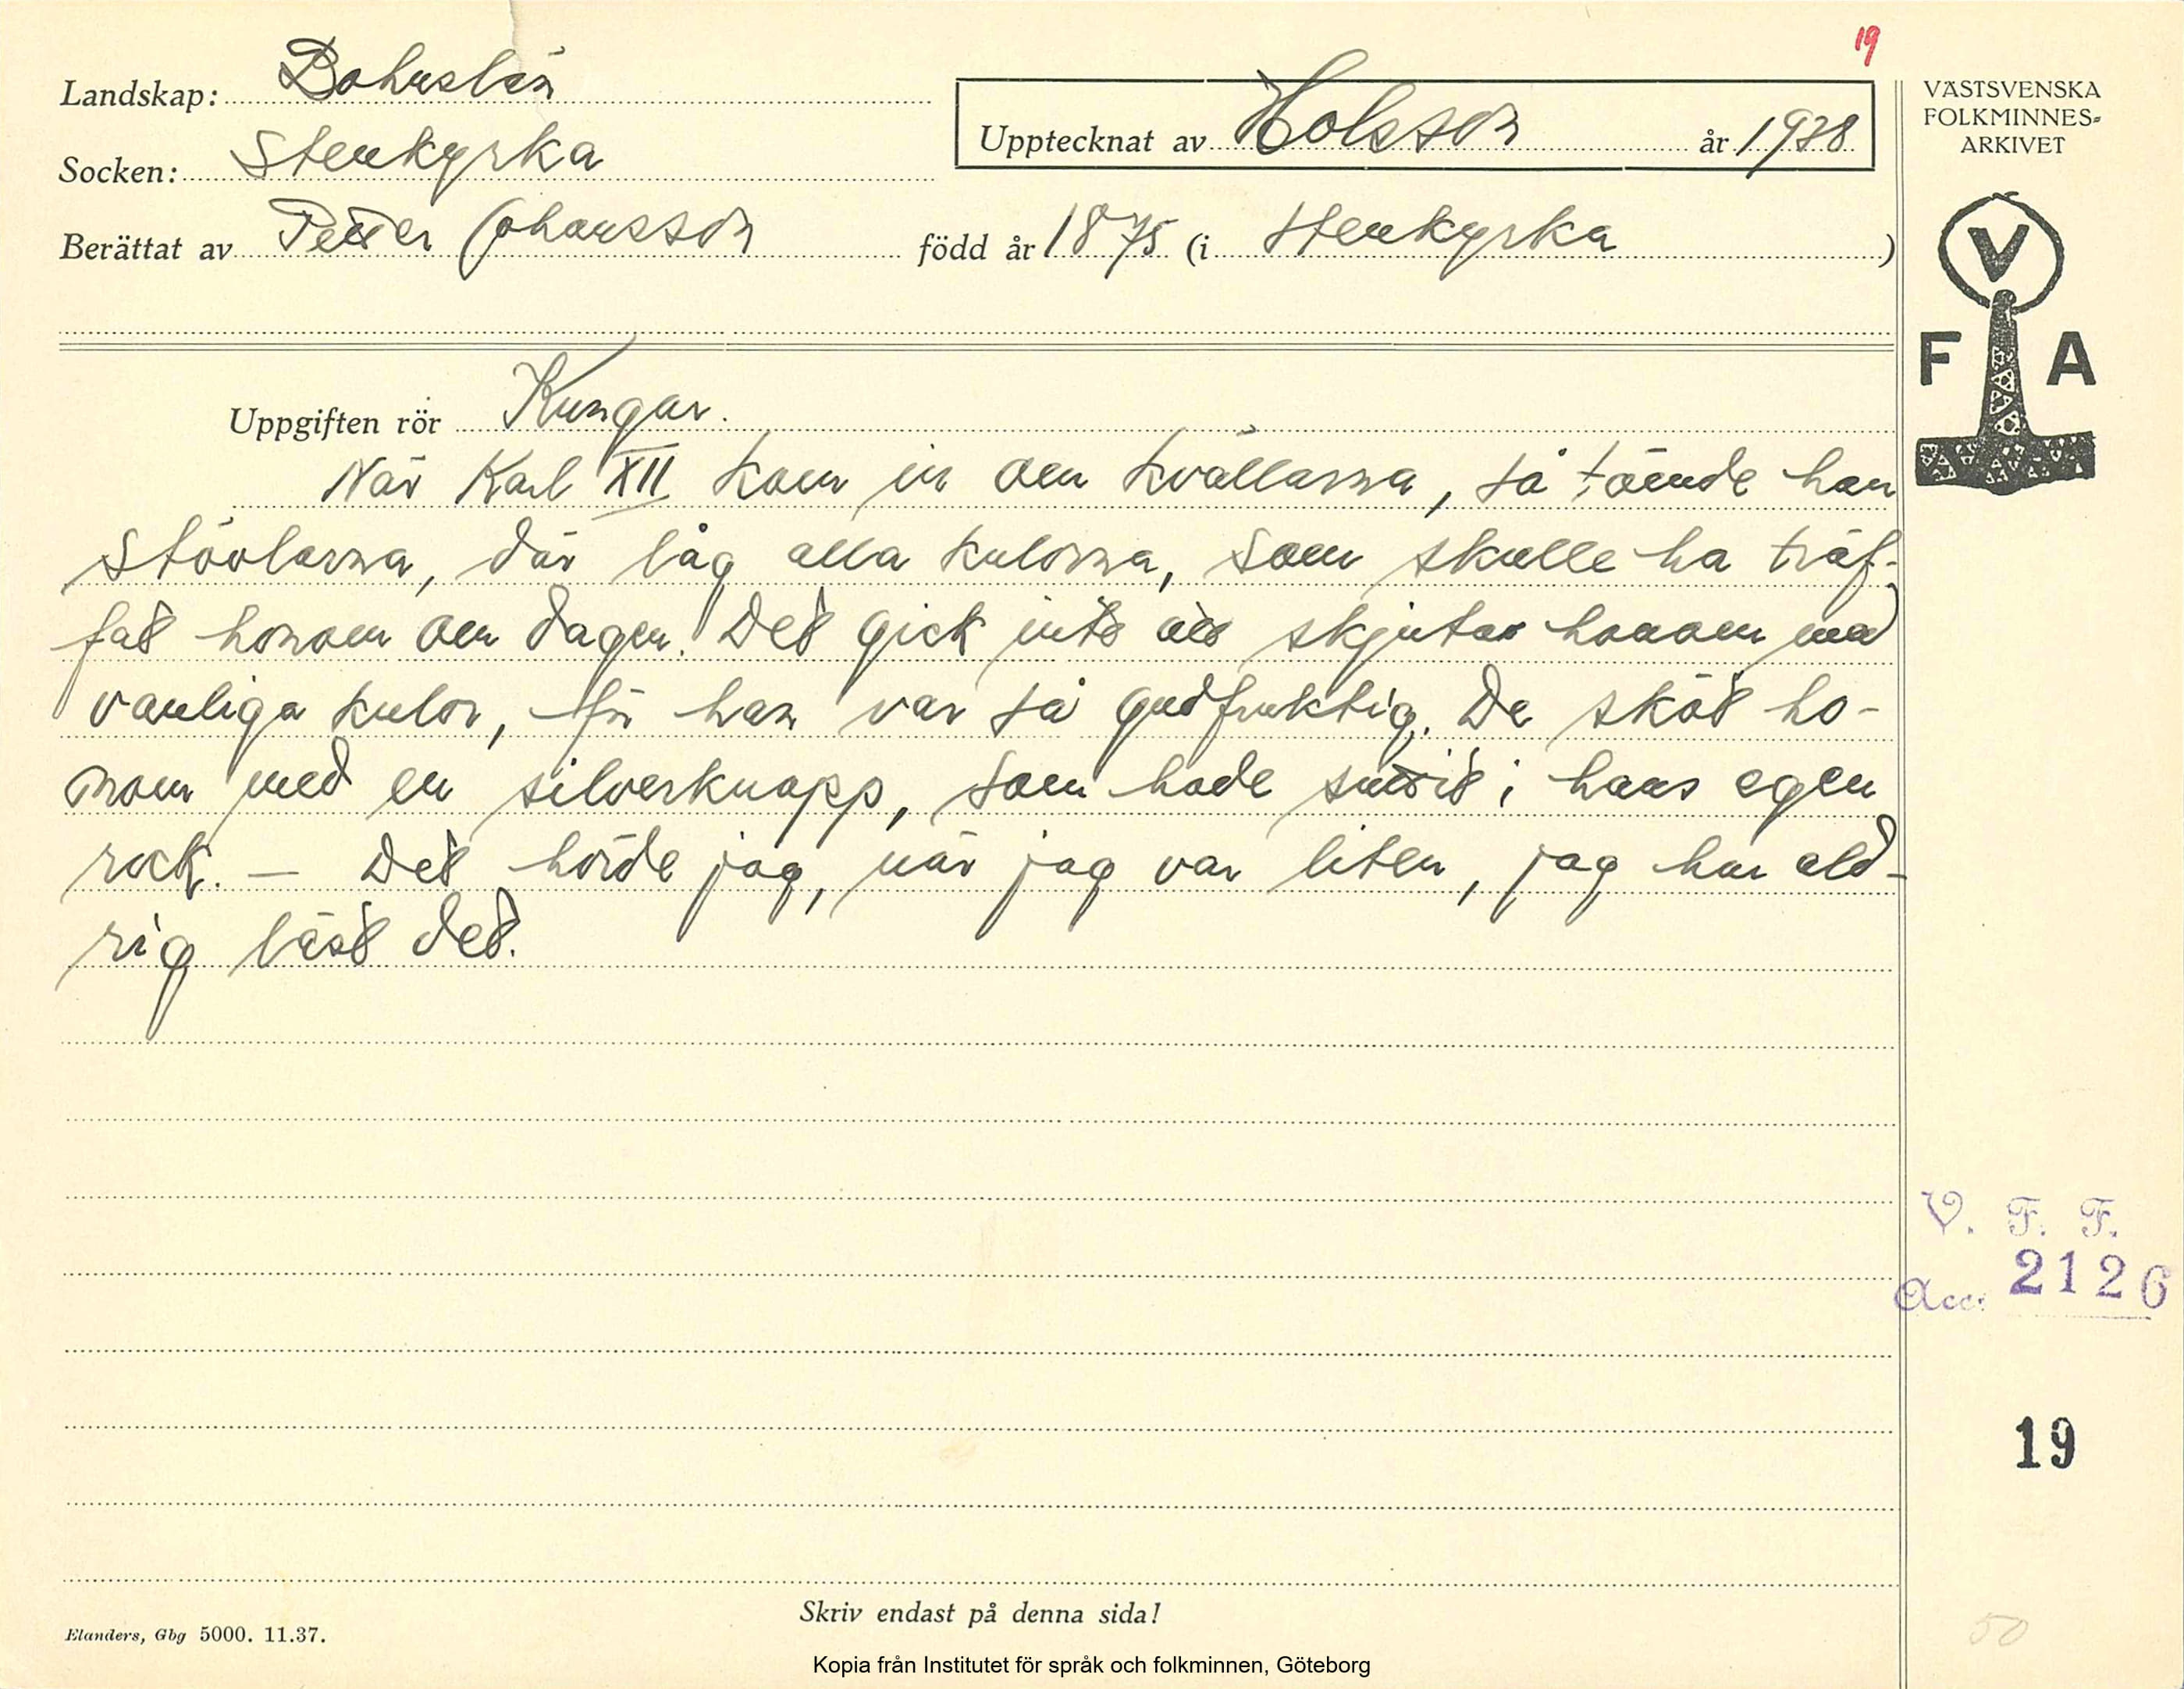 19
Landskap: Bohuslän
Socken: Stenkyrka
Upptecknat av Holsson år 1938
VÄSTSVENSKA
FOLKMINNES-
ARKIVET
Berättat av Petter Johansson född år 1875 (i Stenkyrka)
V
F A
Uppgiften rör Kungar.
När Karl XII kom in om kvällarna, så tömde han
stövlarna, där låg alla kulorna, som skulle ha träf-
fat honom om dagen. Det gick inte att skjuta honom med
vanliga kulor, för han var så gudfruktig. De sköt ho-
nom med en silverknapp, som hade suttit i hans egen
rock. — Det hörde jag, när jag var liten, jag har ald-
rig läst det.
V. F. F.
Acc. 2126
19
Skriv endast på denna sida!
Elanders, Gbg 5000. 11.37.
50
Kopia från Institutet för språk och folkminnen, Göteborg